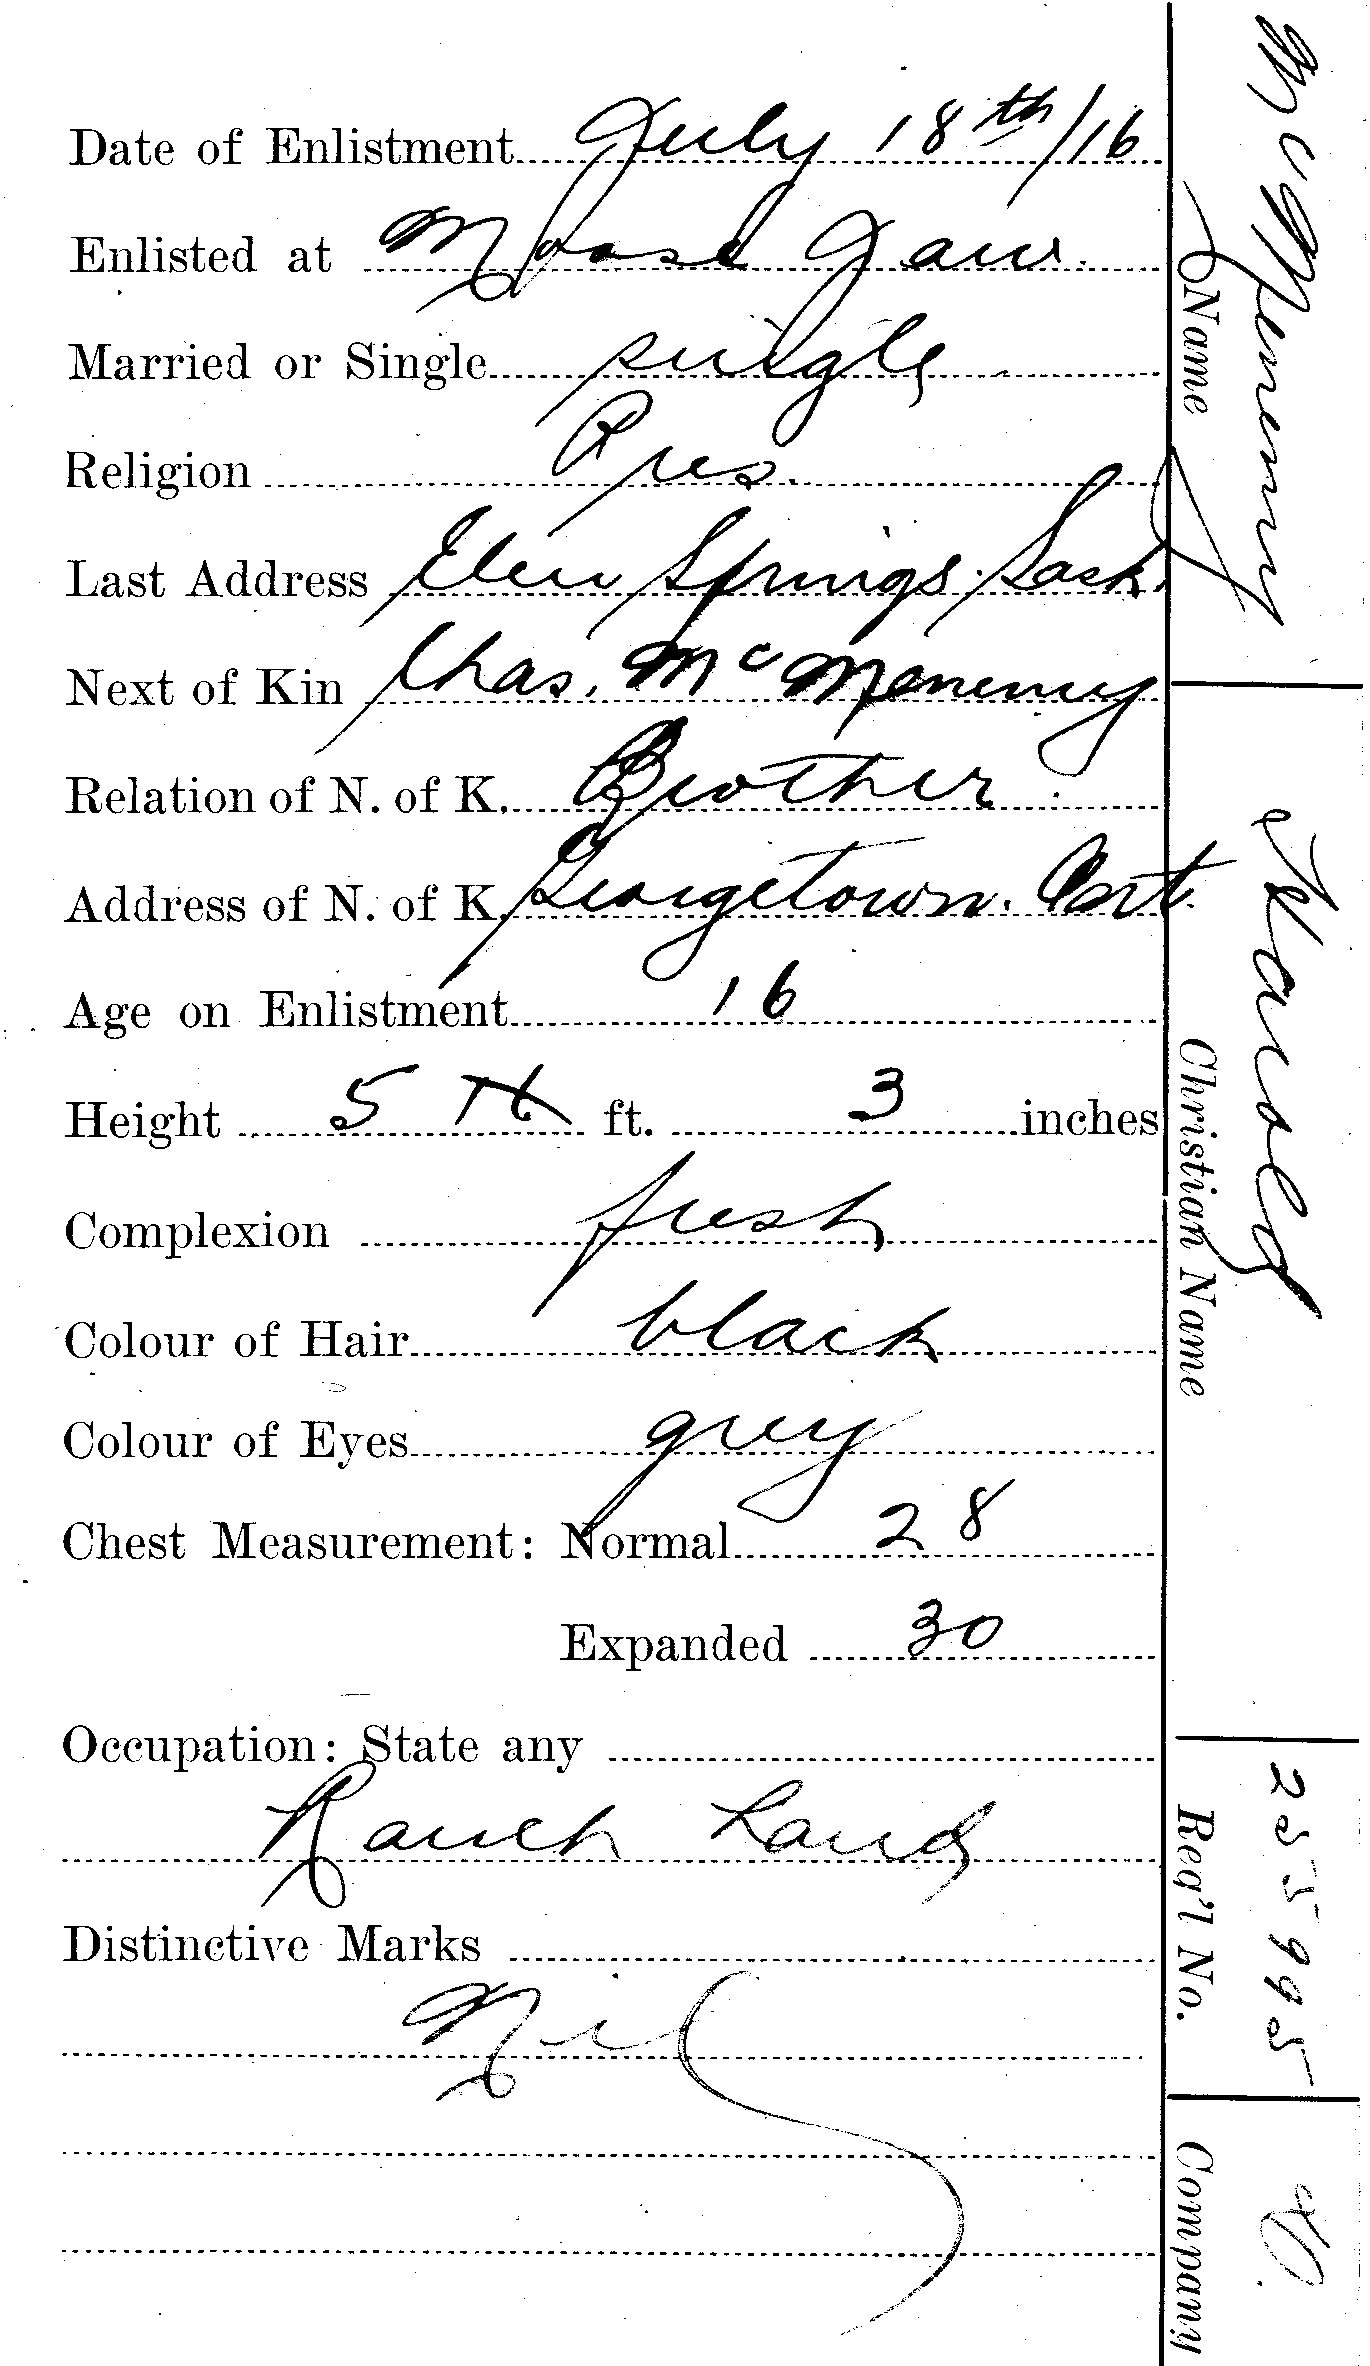 Date of Enlistment July 18th/16
Enlisted at Moose Jaw.
Married or Single single
Religion Pres.
Last Address Elm Springs. Sask.
Next of Kin Chas. Mc Menemy
Relation of N. of K. Brother
Address of N. of K. Georgetown. Ont.
Age on Enlistment 16
Height 5 ft. 3 inches
Complexion fresh
Colour of Hair black
Colour of Eyes grey
Chest Measurement: Normal 28
Expanded 30
Occupation: State any
Ranch Hand
Distinctive Marks
Nil
McMenemy
Name
Harold
Christian Name
255995
Reg'l No.
Company